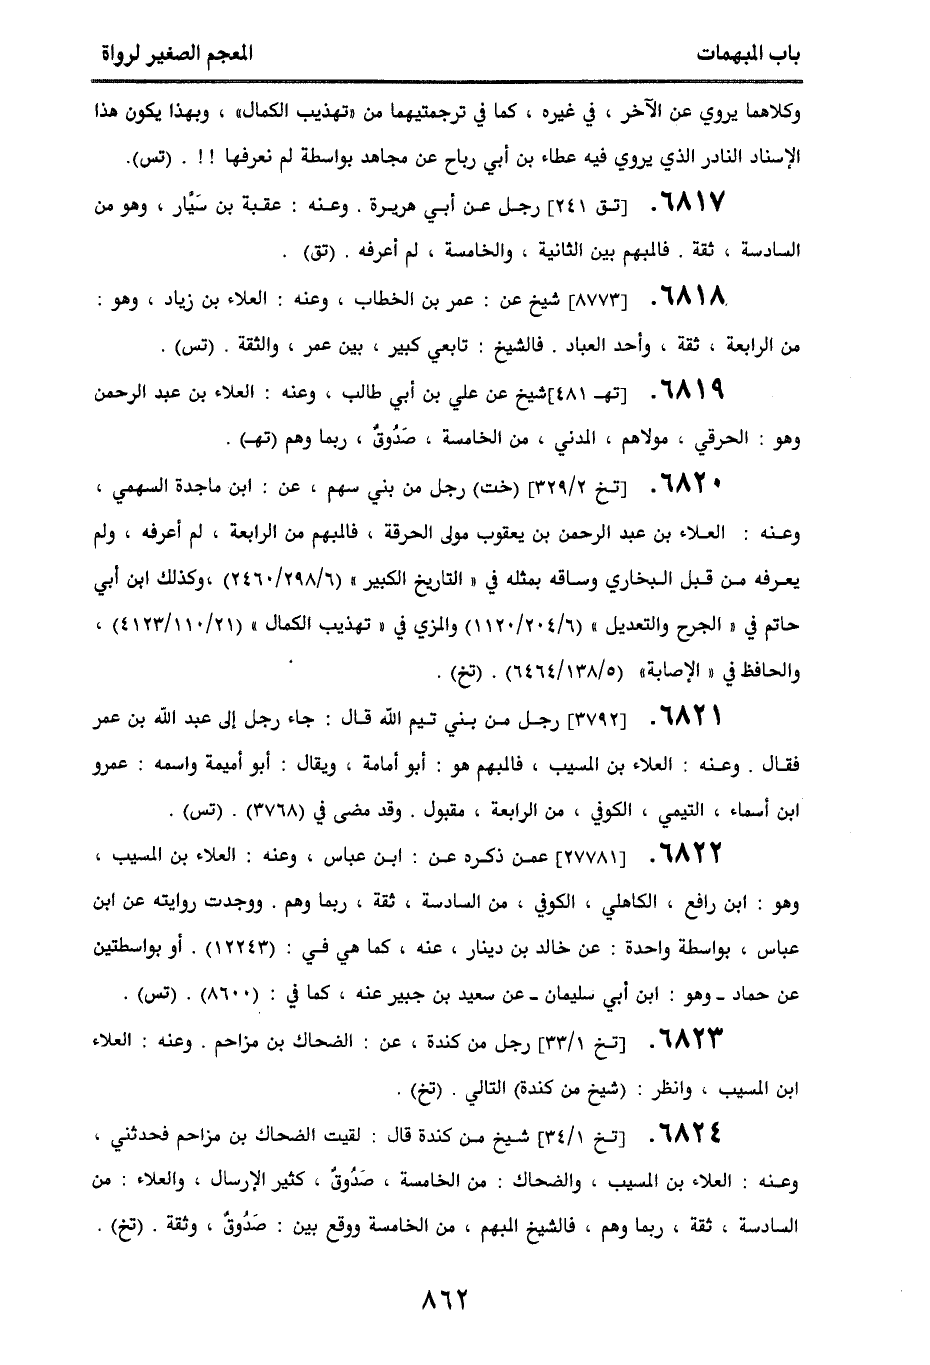 باب المبهمات
المعجم الصغير لرواة
وكلاهما يروي عن الآخر ، في غيره ، كما في ترجمتيهما من «تهذيب الكمال» ، وبهذا يكون هذا
الإسناد النادر الذي يروي فيه عطاء بن أبي رباح عن مجاهد بواسطة لم نعرفها !! . (تس).
٦٨١٧. [تق ٢٤١] رجل عن أبي هريرة . وعنه : عقبة بن سَيَّار ، وهو من
السادسة ، ثقة . فالمبهم بين الثانية ، والخامسة ، لم أعرفه . (تق) .
٦٨١٨. [٨٧٧٣] شيخ عن : عمر بن الخطاب ، وعنه : العلاء بن زياد ، وهو :
من الرابعة ، ثقة ، وأحد العباد . فالشيخ : تابعي كبير ، بين عمر ، والثقة . (تس) .
٦٨١٩. [تهـ ٤٨١]شيخ عن علي بن أبي طالب ، وعنه : العلاء بن عبد الرحمن
وهو : الحرقي ، مولاهم ، المدني ، من الخامسة ، صَدُوقٌ ، ربما وهم (تهـ) .
٦٨٢٠. [تخ ٣٢٩/٢] (خت) رجل من بني سهم ، عن : ابن ماجدة السهمي ،
وعنه : العلاء بن عبد الرحمن بن يعقوب مولى الحرقة ، فالمبهم من الرابعة ، لم أعرفه ، ولم
يعرفه من قبل البخاري وساقه بمثله في « التاريخ الكبير » (٢٤٦٠/٢٩٨/٦) ،وكذلك ابن أبي
حاتم في « الجرح والتعديل » (١١٢٠/٢٠٤/٦) والمزي في « تهذيب الكمال » (٤١٢٣/١١٠/٢١) ،
والحافظ في « الإصابة» (٦٤٦٤/١٣٨/٥) . (تخ) .
٦٨٢١. [٣٧٩٢] رجل من بني تيم الله قال : جاء رجل إلى عبد الله بن عمر
فقال . وعنه : العلاء بن المسيب ، فالمبهم هو : أبو أمامة ، ويقال : أبو أميمة واسمه : عمرو
ابن أسماء ، التيمي ، الكوفي ، من الرابعة ، مقبول . وقد مضى في (٣٧٦٨) . (تس) .
٦٨٢٢. [٢٧٧٨١] عمن ذكره عن : ابن عباس ، وعنه : العلاء بن المسيب ،
وهو : ابن رافع ، الكاهلي ، الكوفي ، من السادسة ، ثقة ، ربما وهم . ووجدت روايته عن ابن
عباس ، بواسطة واحدة : عن خالد بن دينار ، عنه ، كما هي في : (١٢٢٤٣) . أو بواسطتين
عن حماد ـ وهو : ابن أبي سليمان ـ عن سعيد بن جبير عنه ، كما في : (٨٦٠٠) . (تس) .
٦٨٢٣. [تخ ٣٣/١] رجل من كندة ، عن : الضحاك بن مزاحم . وعنه : العلاء
ابن المسيب ، وانظر : (شيخ من كندة) التالي . (تخ) .
٦٨٢٤. [تخ ٣٤/١] شيخ من كندة قال : لقيت الضحاك بن مزاحم فحدثني ،
وعنه : العلاء بن المسيب ، والضحاك : من الخامسة ، صَدُوقٌ ، كثير الإرسال ، والعلاء : من
السادسة ، ثقة ، ربما وهم ، فالشيخ المبهم ، من الخامسة ووقع بين : صَدُوقٌ ، وثقة . (تخ) .
٨٦٢